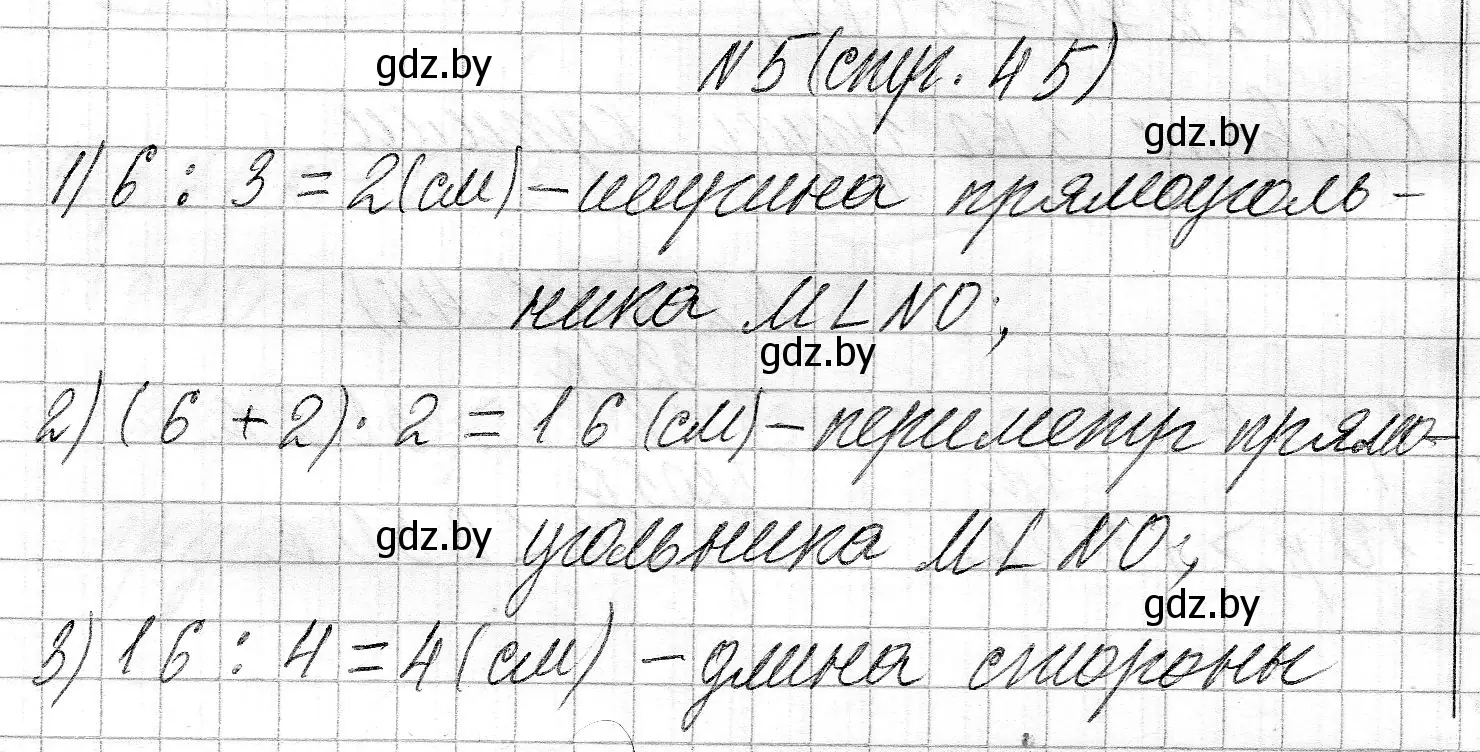 gdz.by
N5 (стр. 45)
gdz.by
1) 6 : 3 = 2 (см) – ширина прямоуголь-
ника MLNO;
gdz.by
2) (6 + 2) · 2 = 16 (см) – периметр прямо-
gdz.by
угольника MLNO;
gdz.by
3) 16 : 4 = 4 (см) – длина стороны